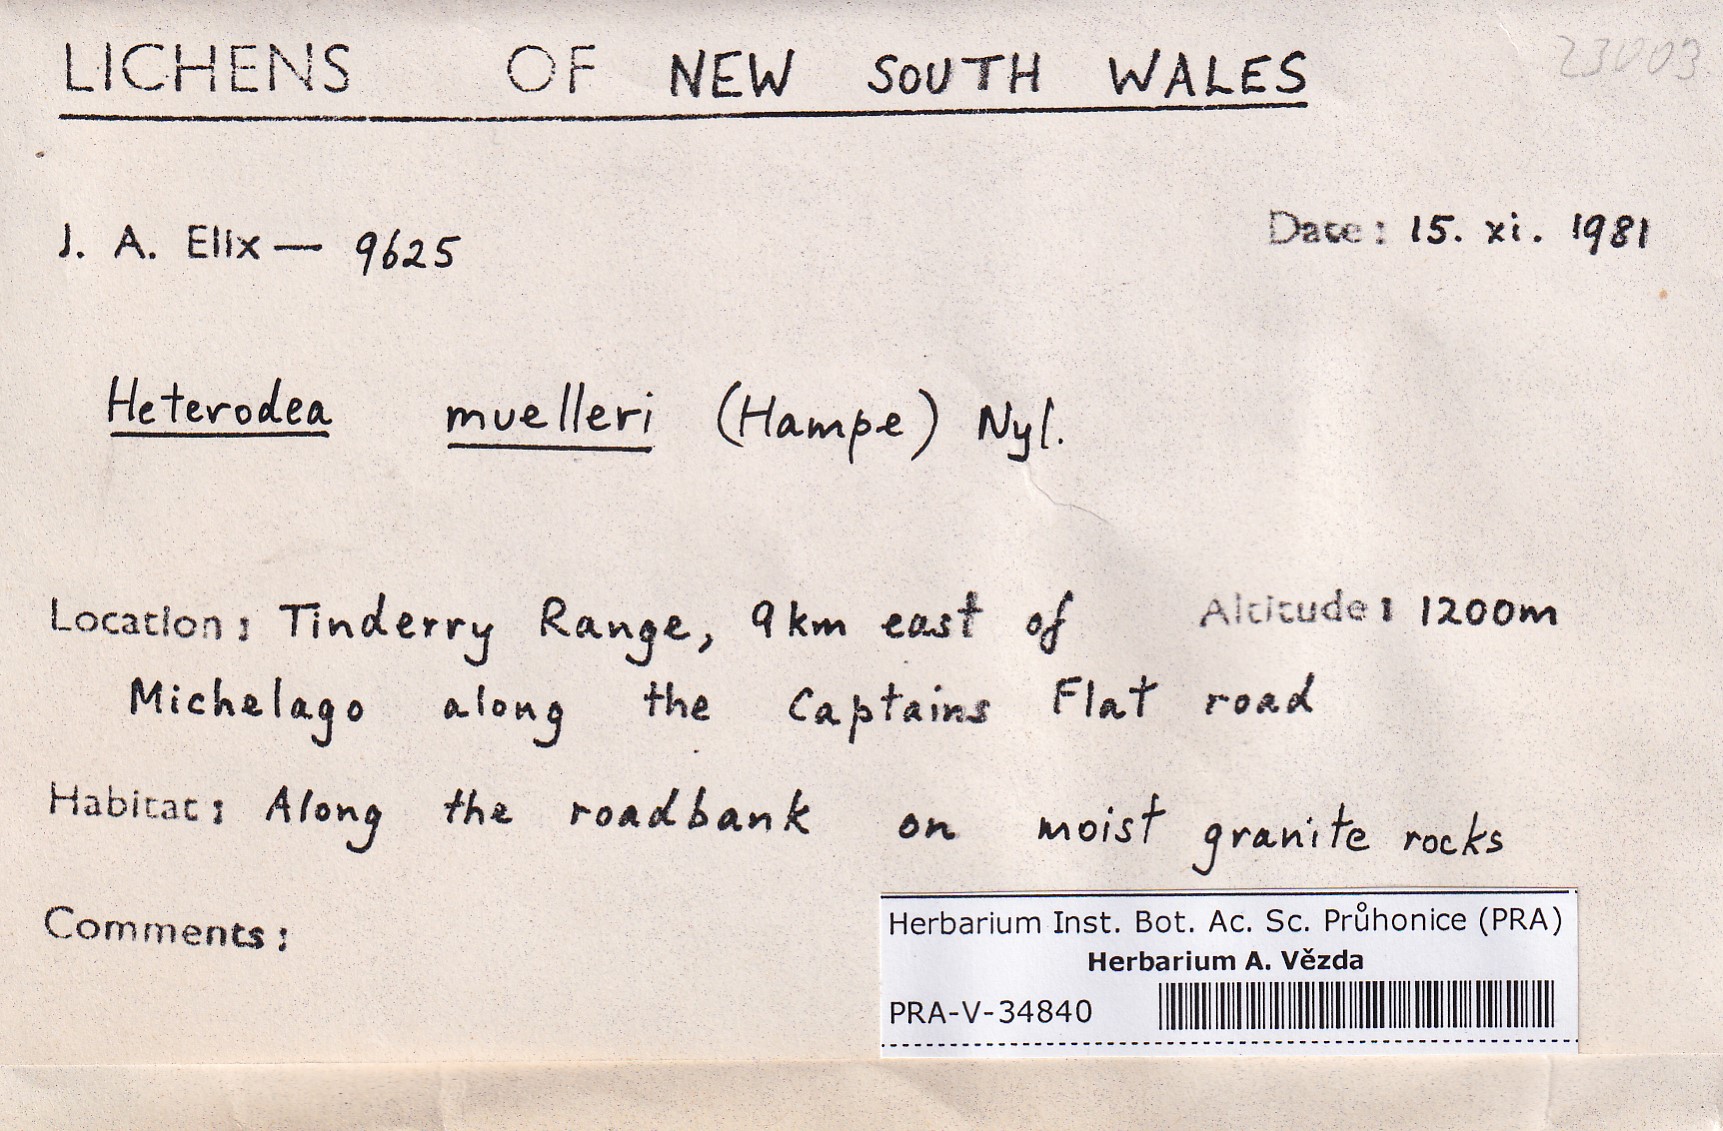 23003
LICHENS OF NEW SOUTH WALES
J. A. Elix — 9625
Date: 15. xi. 1981
Heterodea muelleri (Hampe) Nyl.
Location: Tinderry Range, 9km east of
Altitude: 1200m
Michelago along the Captains Flat road
Habitat: Along the roadbank on moist granite rocks
Comments:
Herbarium Inst. Bot. Ac. Sc. Průhonice (PRA)
Herbarium A. Vězda
PRA-V-34840